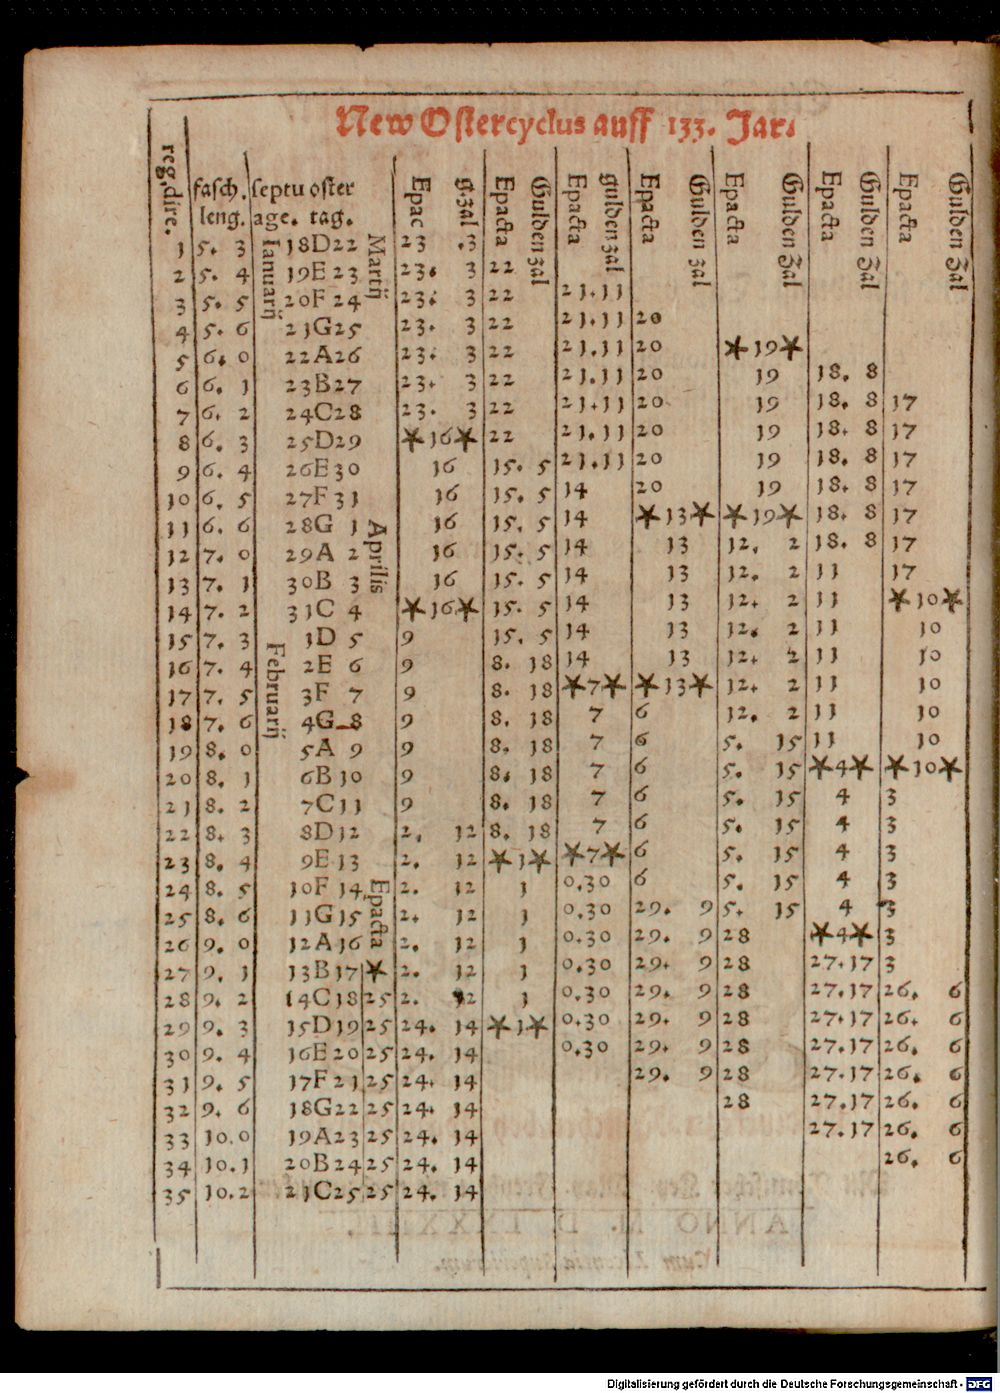 New Ostercyclus auff 133. Jar.
reg. dire. fasch. leng. septu age. oster tag. Epac g. zal Epacta Gulden zal Epacta gulden zal Epacta Gulden zal Epacta Gulden Zal Epacta Gulden Zal Epacta Gulden Zal
Ianuarij Martij
1 5. 3 18D22 23 .3
2 5. 4 19E23 23. 3 22
3 5. 5 20F24 23. 3 22 21.11
4 5. 6 21G25 23. 3 22 21.11 20
5 6. 0 22A26 23. 3 22 21.11 20 *19*
6 6. 1 23B27 23. 3 22 21.11 20 19 18. 8
7 6. 2 24C28 23. 3 22 21.11 20 19 18. 8 17
8 6. 3 25D29 *16* 22 21.11 20 19 18. 8 17
9 6. 4 26E30 16 15. 5 21.11 20 19 18. 8 17
10 6. 5 27F31 16 15. 5 14 20 19 18. 8 17
11 6. 6 28G 1 Aprilis 16 15. 5 14 *13* *19* 18. 8 17
12 7. 0 29A 2 16 15. 5 14 13 12. 2 18. 8 17
13 7. 1 30B 3 16 15. 5 14 13 12. 2 11 17
14 7. 2 31C 4 *16* 15. 5 14 13 12. 2 11 *10*
15 7. 3 Februarij 1D 5 9 15. 5 14 13 12. 2 11 10
16 7. 4 2E 6 9 8. 18 14 13 12. 2 11 10
17 7. 5 3F 7 9 8. 18 *7* *13* 12. 2 11 10
18 7. 6 4G 8 9 8. 18 7 6 12. 2 11 10
19 8. 0 5A 9 9 8. 18 7 6 5. 15 11 10
20 8. 1 6B10 9 8. 18 7 6 5. 15 *4* *10*
21 8. 2 7C11 9 8. 18 7 6 5. 15 4 3
22 8. 3 8D12 2. 12 8. 18 7 6 5. 15 4 3
23 8. 4 9E13 2. 12 *1* *7* 6 5. 15 4 3
24 8. 5 10F14 Epacta 2. 12 1 0.30 6 5. 15 4 3
25 8. 6 11G15 2. 12 1 0.30 29. 9 5. 15 4 3
26 9. 0 12A16 2. 12 1 0.30 29. 9 28 *4* 3
27 9. 1 13B17 * 2. 12 1 0.30 29. 9 28 27.17 3
28 9. 2 14C18 25 2. 12 1 0.30 29. 9 28 27.17 26. 6
29 9. 3 15D19 25 24. 14 *1* 0.30 29. 9 28 27.17 26. 6
30 9. 4 16E20 25 24. 14 0.30 29. 9 28 27.17 26. 6
31 9. 5 17F21 25 24. 14 29. 9 28 27.17 26. 6
32 9. 6 18G22 25 24. 14 28 27.17 26. 6
33 10.0 19A23 25 24. 14 27.17 26. 6
34 10.1 20B24 25 24. 14 26. 6
35 10.2 21C25 25 24. 14
Digitalisierung gefördert durch die Deutsche Forschungsgemeinschaft - DFG